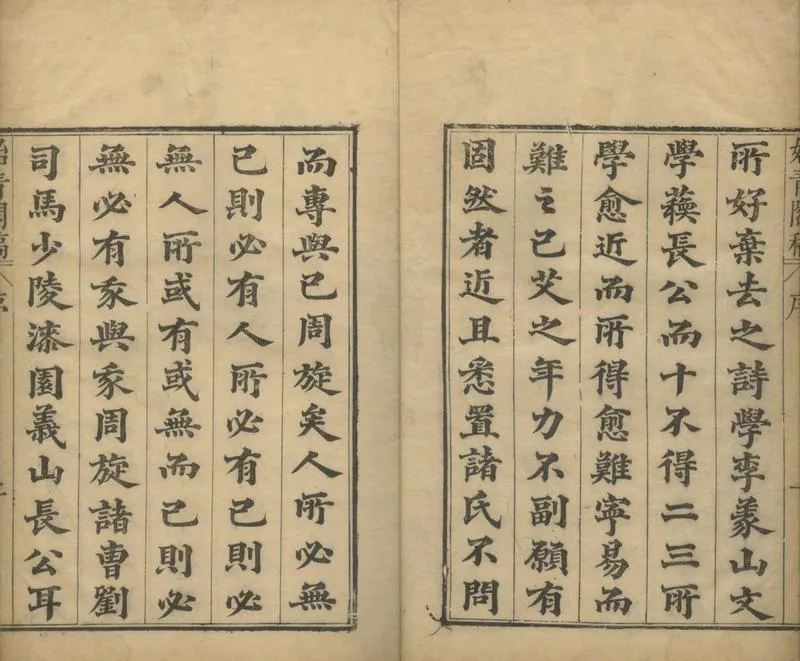 所好棄去之詩學李義山文
學蘓長公而十不得二三所
學愈近而所得愈難寧易而
難之已艾之年力不副願有
固然者近且悉置諸氏不問
而專與已周旋矣人所必無
已則必有人所必有已則必
無人所或有或無而已則必
無必有豕與豕周旋諸曹劉
司馬少陵漆園義山長公耳